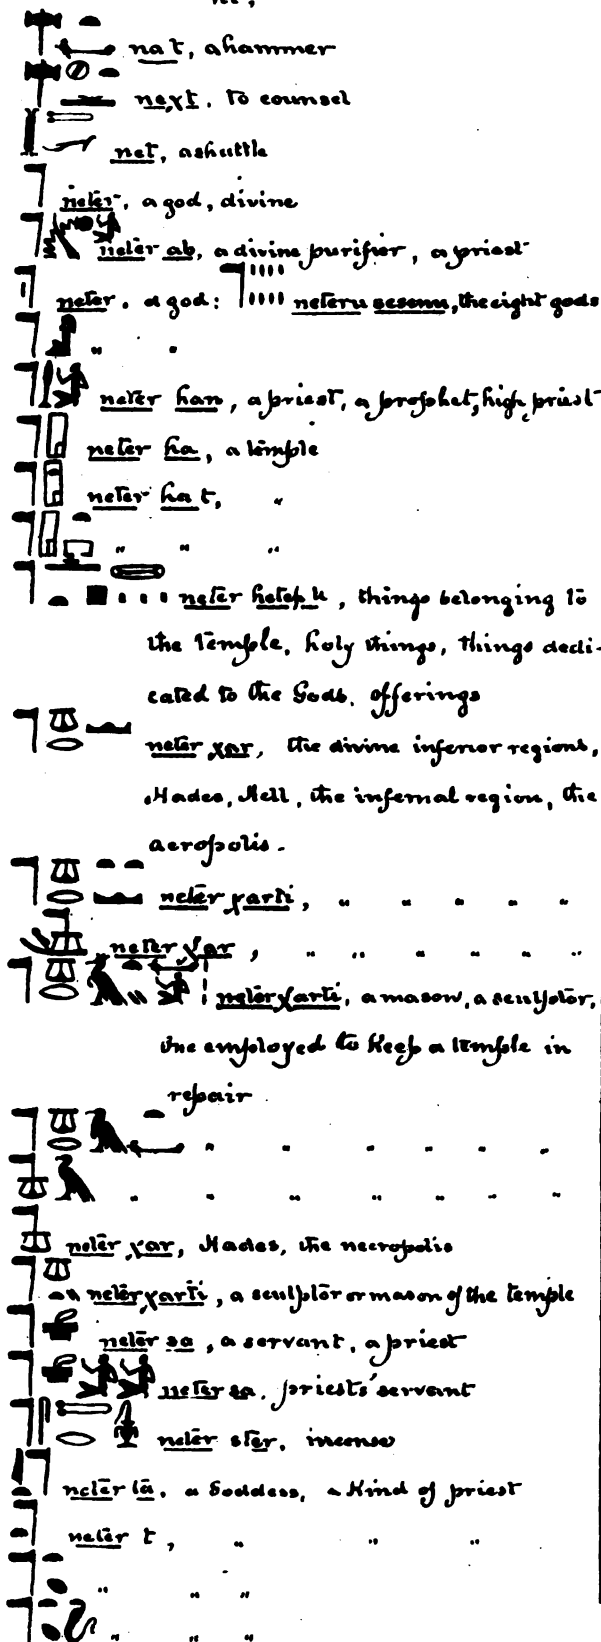 na t, a hammer
next, to counsel
net, a shuttle
neter, a god, divine
neter ab, a divine purifier, a priest
neter, a god: neteru sesennu, the eight gods
" "
neter han, a priest, a prophet, high priest
neter ha, a temple
neter ha t, "
" " "
neter hetep u, things belonging to
the Temple, holy things, things dedi-
cated to the Gods, offerings
neter χar, the divine inferior regions,
Hades, Hell, the infernal region, the
acropolis.
neter χarti, " " " " "
neter χar, " " " " " "
neter χarti, a mason, a sculptor,
one employed to keep a temple in
repair
" " " " " "
" " " " " " "
neter χar, Hades, the necropolis
neter χarti, a sculptor or mason of the temple
neter sa, a servant, a priest
neter sa, priests' servant
neter ster, incense
neter ta, a Goddess, a kind of priest
neter t, " " "
" " "
" " "